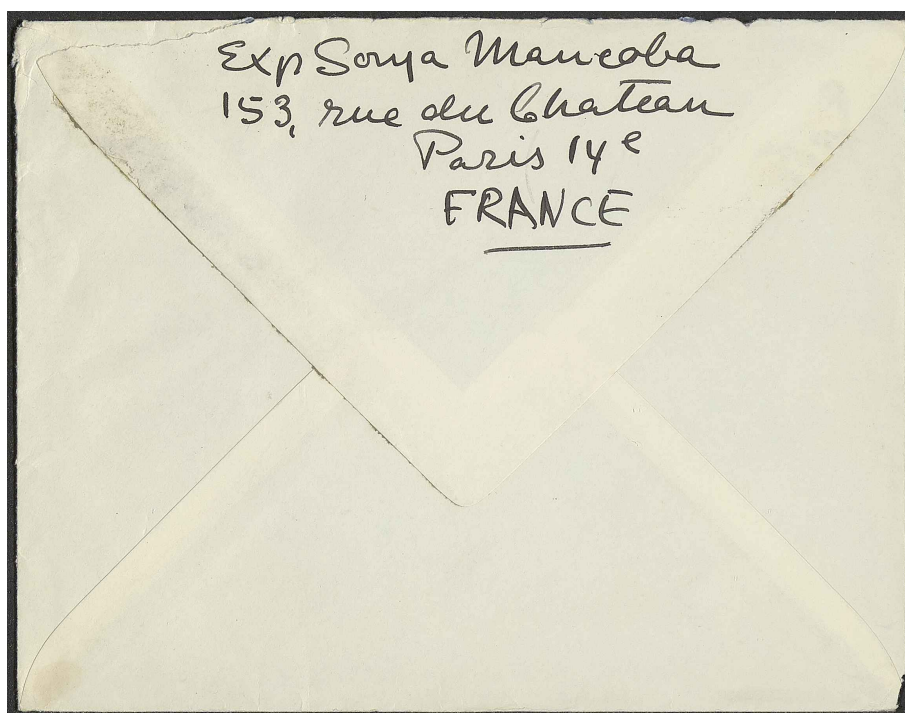 Exp Sonja Mancoba
153, rue du Chateau
Paris 14e
FRANCE